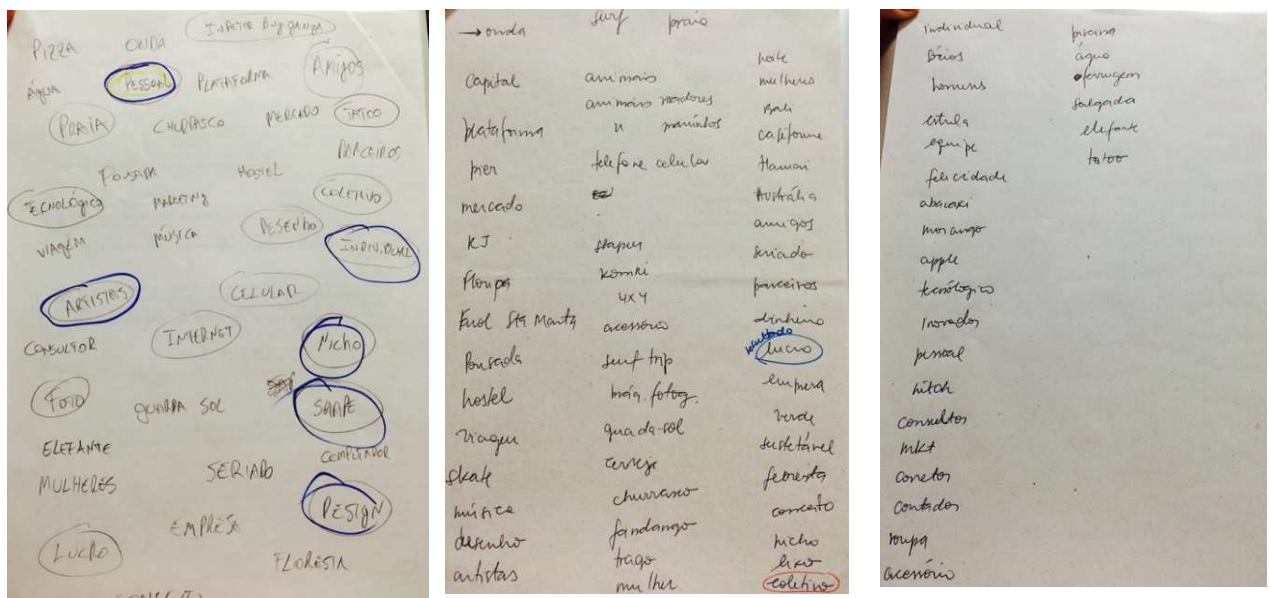 INSPETOR BUGIGANGA
PIZZA ONDA
AMIGOS
ÁGUA PESSOAL PLATAFORMA
PRAIA CHURRASCO MERCADO TATOO
PARCEIROS
POUSADA HOSTEL
TECNOLÓGICO MARKETING COLETIVO
VIAGEM MÚSICA DESENHO INDIVIDUAL
ARTISTAS CELULAR
CONSULTOR INTERNET NICHO
FOTO GUARDA SOL SHAPE
ELEFANTE COMPUTADOR
MULHERES SERIADO
EMPRESA DESIGN
LUCRO FLORESTA
→ onda surf praia
capital
plataforma
pier
mercado
KJ
Pousada
hostel
viagem
skate
música
desenho
artistas
animais
animais
telefone celular
shaper
kombi
4x4
acessório
surf trip
máq. fotog.
guada-sol
cerveja
churrasco
fandango
trago
mulher
mulheres
Bali
Hawaii
Austrália
amigos
seriado
parceiros
dinheiro
resultado
lucro
empresa
verde
floresta
conceito
nicho
lixo
coletivo
individual
homens
equipe
felicidade
abacaxi
morango
apple
tecnológico
Inovador
pessoal
consultor
mkt
corretor
contador
roupa
acessório
piscina
água
ferrugem
salgada
elefante
tatoo